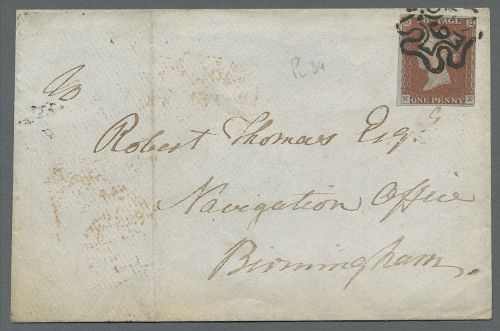 POSTAGE
N E
ONE PENNY
PL 34
To
Robert Thomas Esqr
Navigation Office
Birmingham.